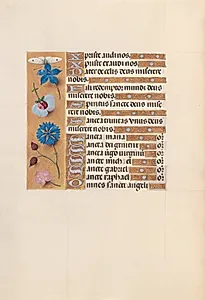 Xpiste audi nos.
Xpiste exaudi nos.
Pater de celis deus miserere
nobis.
Fili redemptor mundi deus
miserere nobis.
Spiritus sancte deus miserere
nobis.
Sancta trinitas unus deus
miserere nobis.
Sancta maria
Sancta dei genitrix
Sancta virgo virginum
Sancte michael
Sancte gabriel
Sancte raphael
Omnes sancti angeli